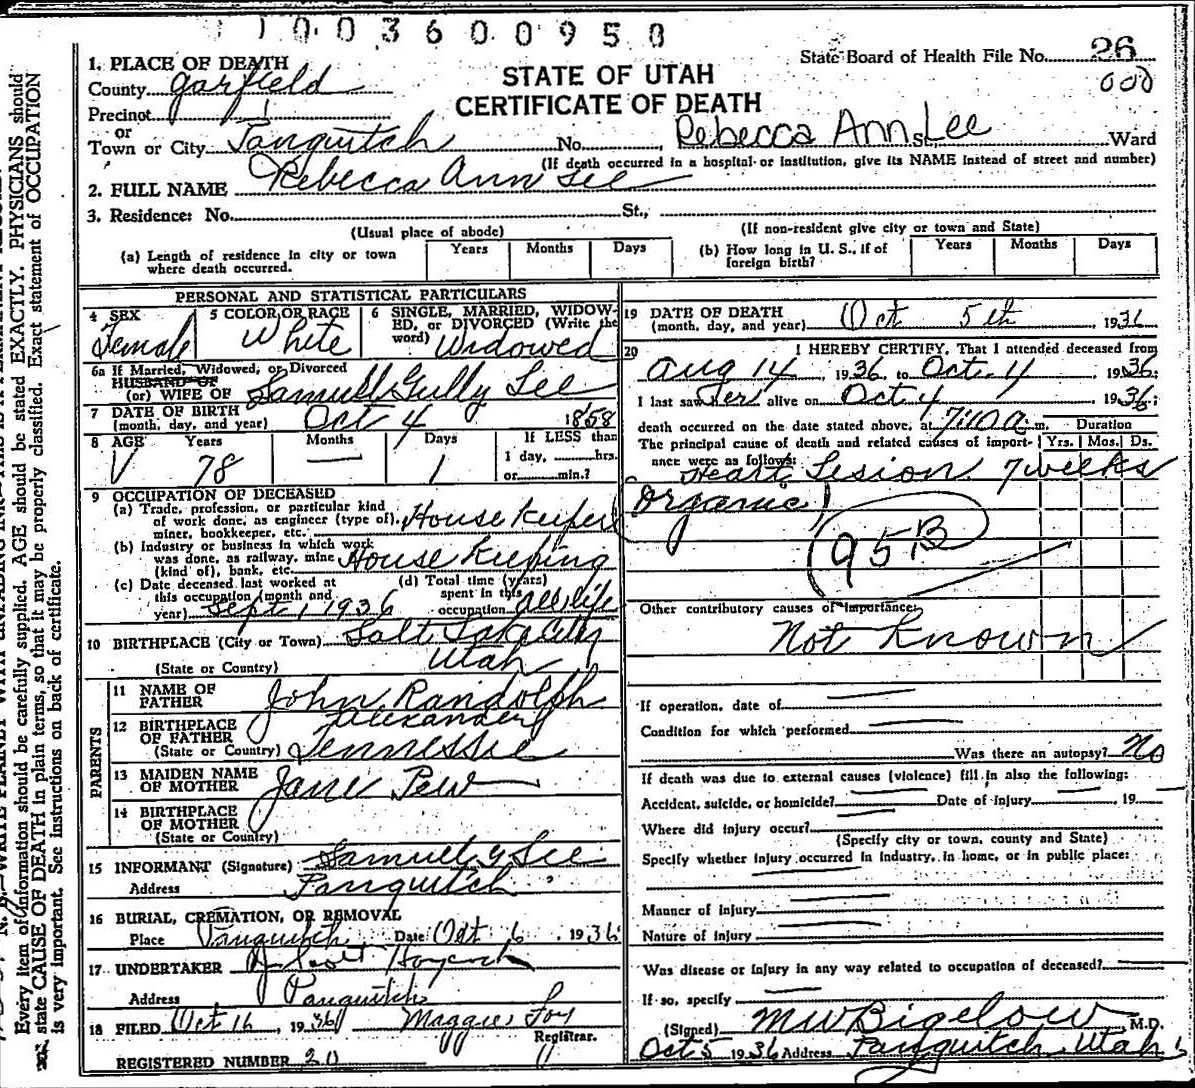 1 1 0 0 3 6 0 0 9 5 0
State Board of Health File No. 26
000
STATE OF UTAH
CERTIFICATE OF DEATH
1. PLACE OF DEATH
County Garfield
Precinct
or
Town or City Panguitch No. Rebecca Ann Lee St., Ward
(If death occurred in a hospital or institution, give its NAME instead of street and number)
2. FULL NAME Rebecca Ann Lee
3. Residence: No. St.,
(Usual place of abode) (If non-resident give city or town and State)
(a) Length of residence in city or town where death occurred. Years Months Days
(b) How long in U. S., if of foreign birth? Years Months Days
PERSONAL AND STATISTICAL PARTICULARS
4 SEX Female
5 COLOR OR RACE White
6 SINGLE, MARRIED, WIDOWED, or DIVORCED (Write the word) Widowed
6a If Married, Widowed, or Divorced
HUSBAND OF
(or) WIFE OF Samuel Gully Lee
7 DATE OF BIRTH
(month, day, and year) Oct 4 1858
8 AGE Years Months Days If LESS than
78 — 1 1 day, hrs.
or min.?
9 OCCUPATION OF DECEASED
(a) Trade, profession, or particular kind of work done, as engineer (type of), miner, bookkeeper, etc. House Keeper
(b) Industry or business in which work was done, as railway, mine (kind of), bank, etc. House Keeping
(c) Date deceased last worked at this occupation (month and year) Sept 1 1936
(d) Total time (years) spent in this occupation All life
10 BIRTHPLACE (City or Town) Salt Lake City
(State or Country) Utah
PARENTS
11 NAME OF FATHER John Randolph Alexander
12 BIRTHPLACE OF FATHER
(State or Country) Tennessee
13 MAIDEN NAME OF MOTHER Jane Pew
14 BIRTHPLACE OF MOTHER
(State or Country)
15 INFORMANT (Signature) Samuel G Lee
Address Panguitch
16 BURIAL, CREMATION, OR REMOVAL
Place Panguitch Date Oct 6, 1936
17 UNDERTAKER Scott Haycock
Address Panguitch
18 FILED Oct 16, 1936 Maggie Foy
Registrar.
REGISTERED NUMBER 20
19 DATE OF DEATH
(month, day, and year) Oct 5th 1936
20 I HEREBY CERTIFY, That I attended deceased from
Aug 14, 1936 to Oct. 4 1936;
I last saw her alive on Oct 4 1936;
death occurred on the date stated above, at 7:10 a m. Duration
The principal cause of death and related causes of importance were as follows: Yrs. Mos. Ds.
Heart Lesion 7 weeks
Organic
95B
Other contributory causes of importance:
Not Known
If operation, date of
Condition for which performed
Was there an autopsy? No
If death was due to external causes (violence) fill in also the following:
Accident, suicide, or homicide? Date of injury , 19
Where did injury occur?
(Specify city or town, county and State)
Specify whether injury occurred in industry, in home, or in public place:
Manner of injury
Nature of injury
Was disease or injury in any way related to occupation of deceased?
If so, specify
(Signed) M W Bigelow M.D.
Oct 5 1936 Address Panguitch Utah
Every item of information should be carefully supplied. AGE should be stated EXACTLY. PHYSICIANS should
state CAUSE OF DEATH in plain terms, so that it may be properly classified. Exact statement of OCCUPATION
is very important. See instructions on back of certificate.